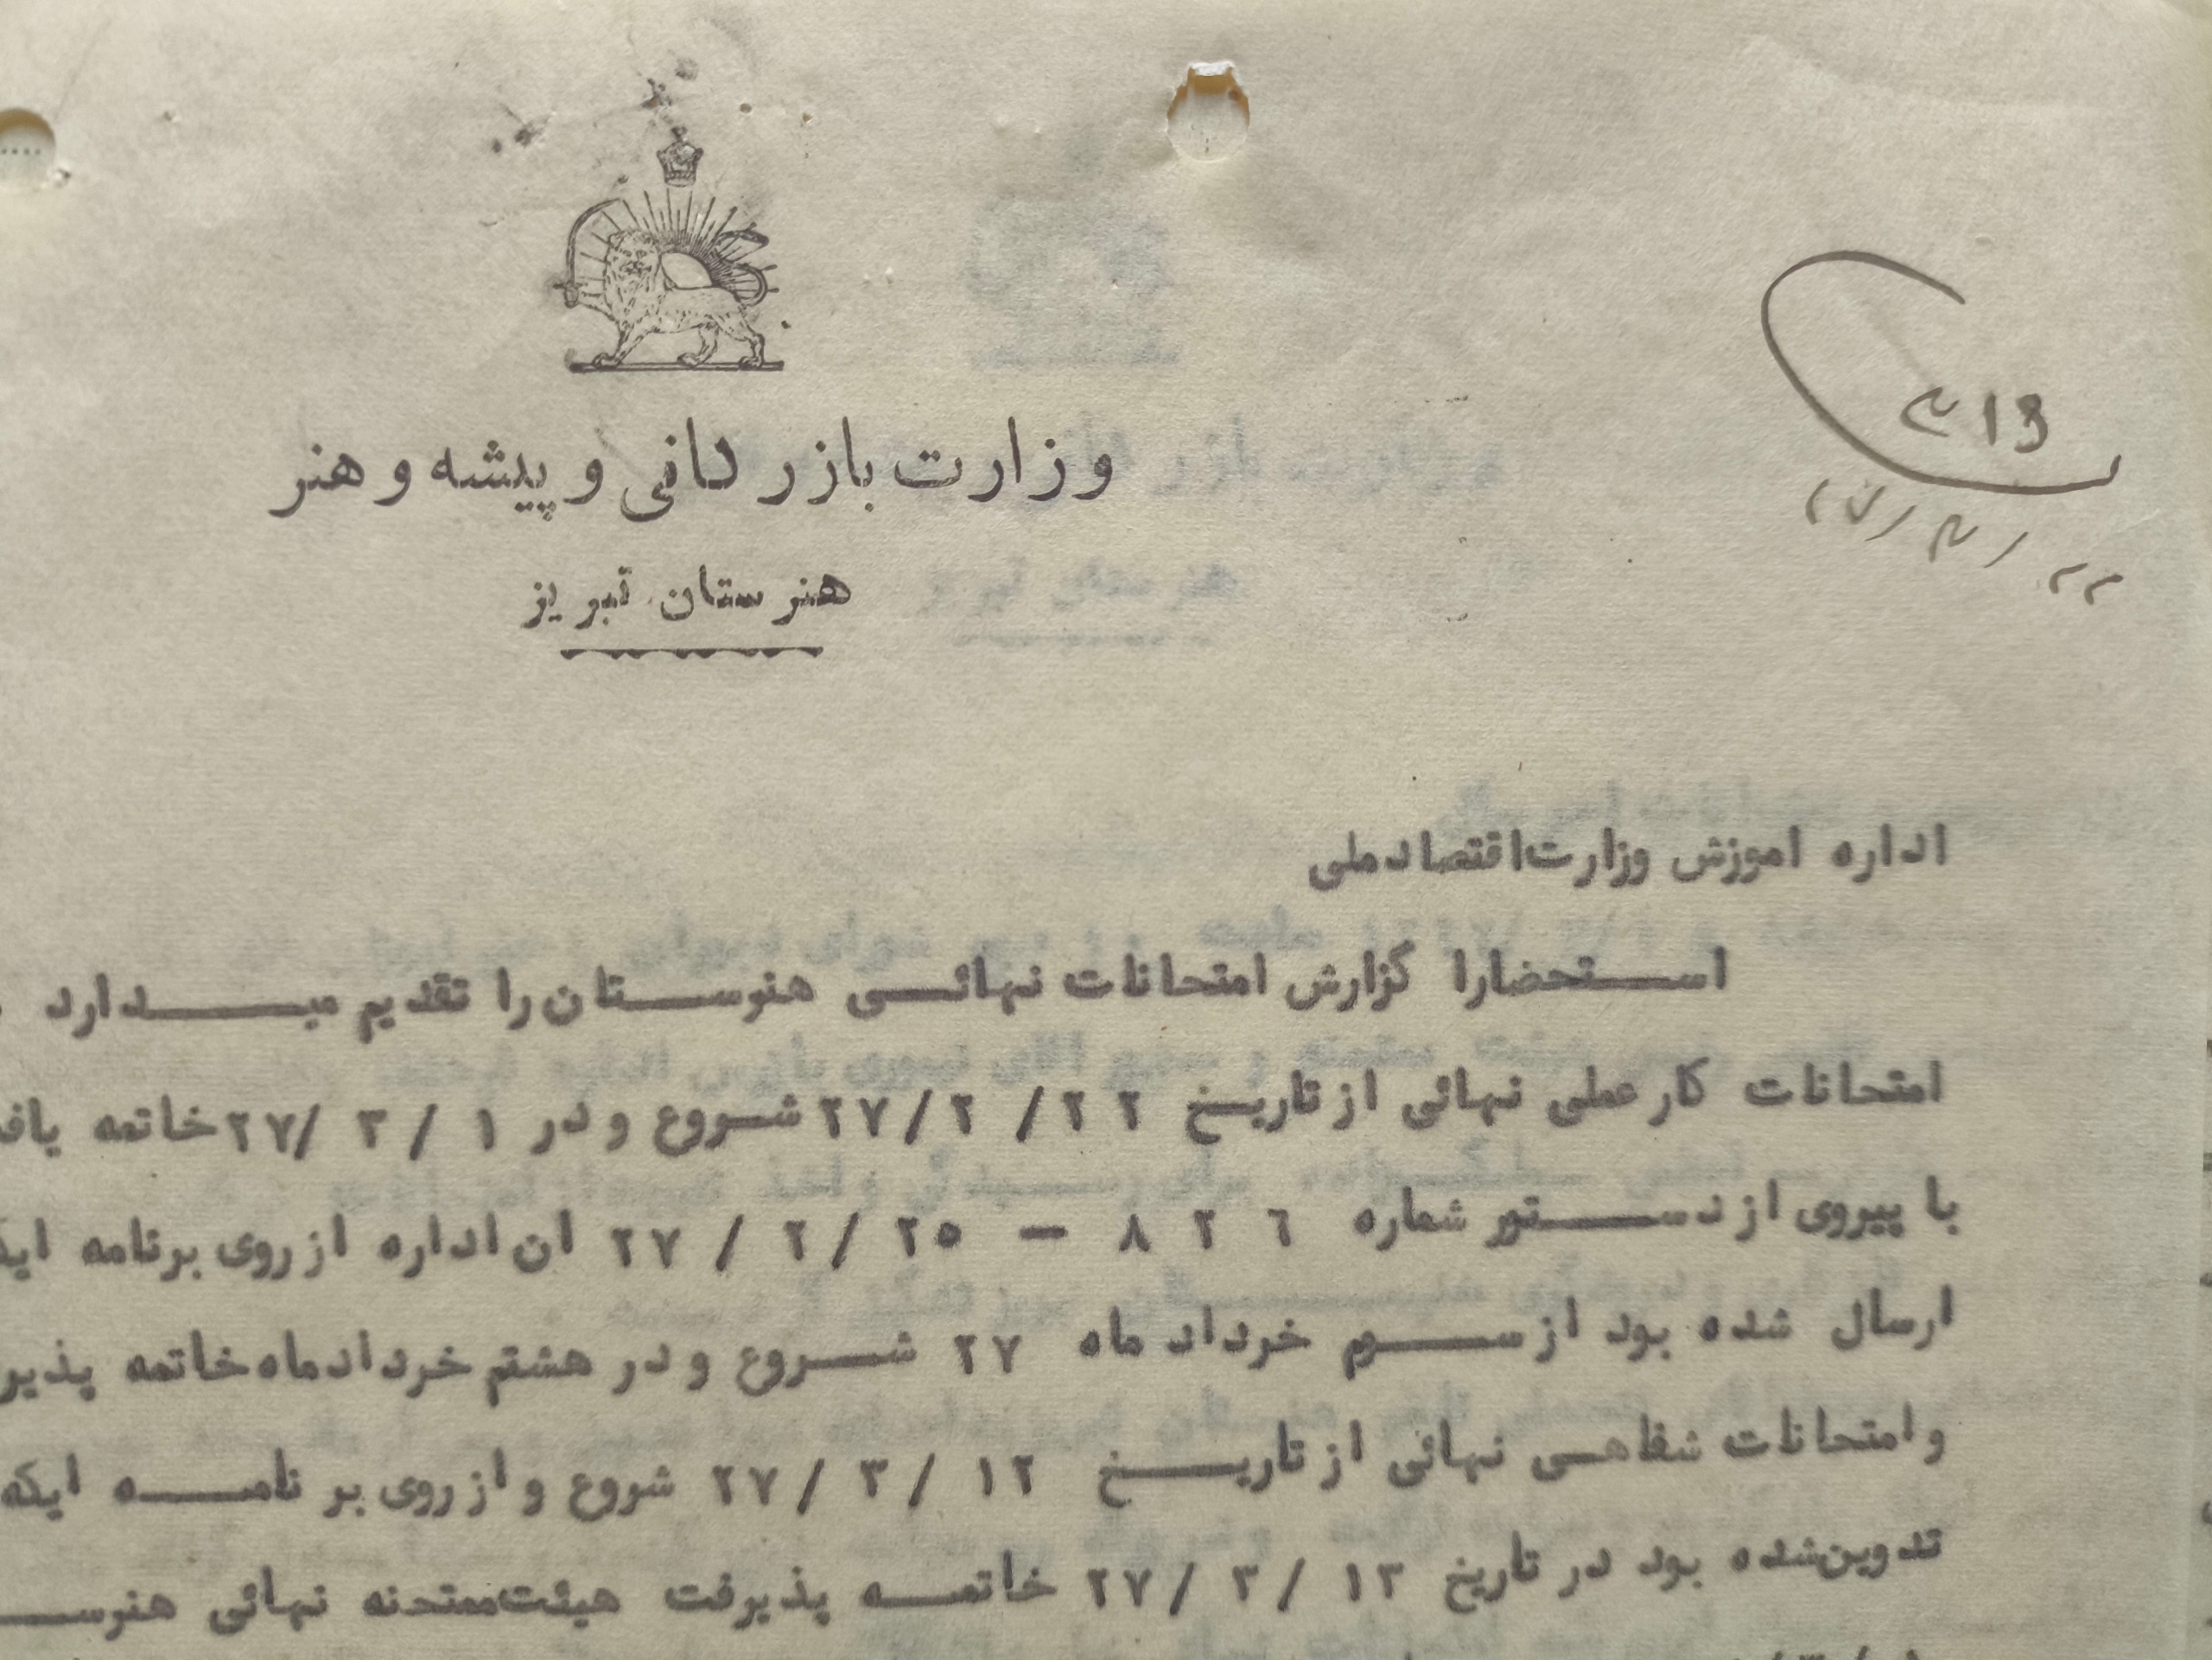 وزارت بازرگانی و پیشه و هنر
هنرستان تبریز
اداره اموزش وزارت اقتصاد ملی
استحضارا گزارش امتحانات نهائی هنرستان را تقدیم میدارد
امتحانات کار عملی نهائی از تاریخ ۲۲ / ۲ / ۲۷ شروع و در ۱ / ۳ / ۲۷ خاتمه یاف
با پیروی از دستور شماره ۸۲۶ - ۲۵ / ۲ / ۲۷ ان اداره از روی برنامه
ارسال شده بود از سوم خرداد ماه ۲۷ شروع و در هشتم خرداد ماه خاتمه پذیر
و امتحانات شفاهی نهائی از تاریخ ۱۲ / ۳ / ۲۷ شروع و از روی برنامه ایکه
تدوین شده بود در تاریخ ۱۳ / ۳ / ۲۷ خاتمه پذیرفت هیئت ممتحنه نهائی هنرس